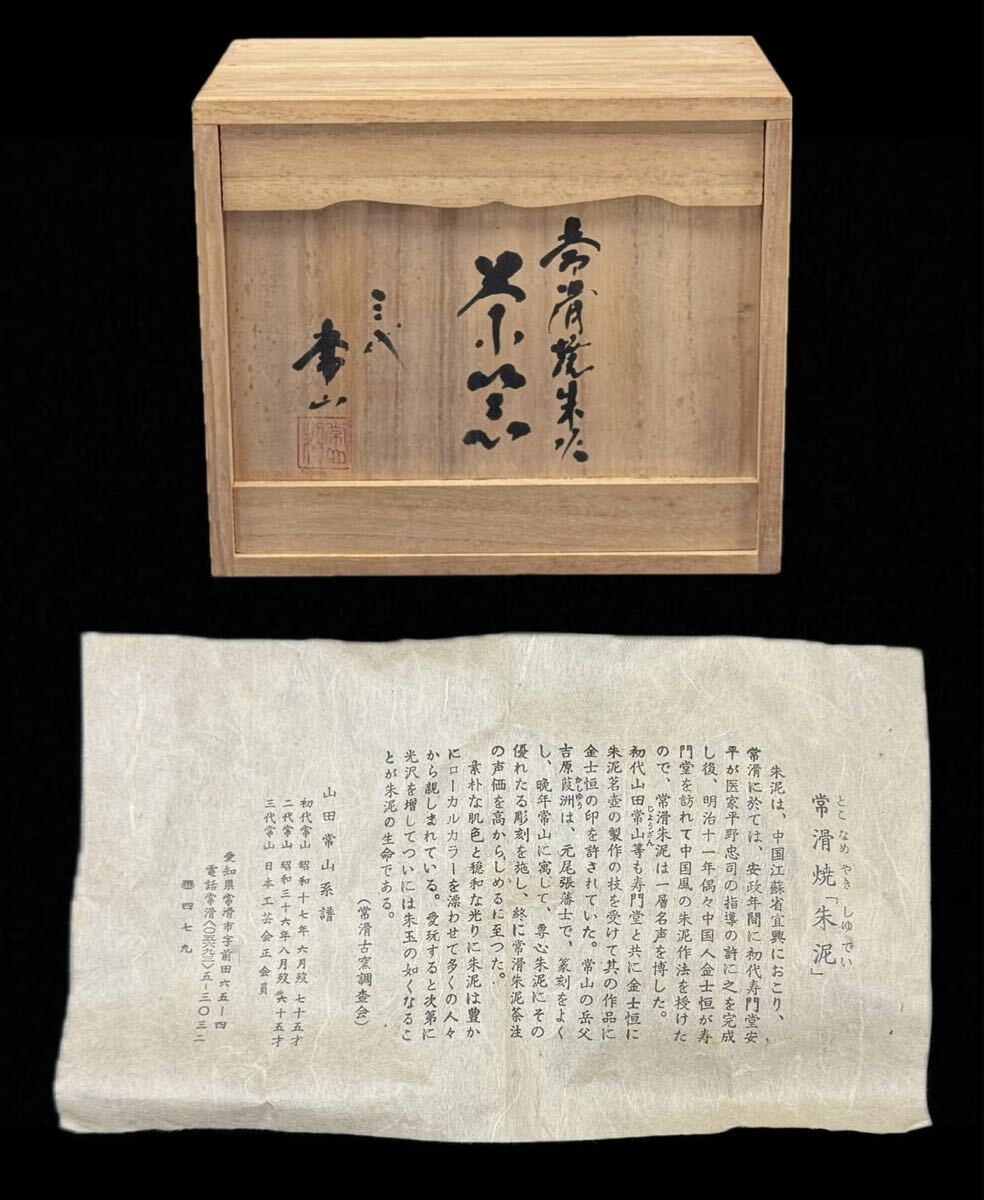 常滑焼朱泥
茶注
三代
常山
常滑焼「朱泥」
とこ なめ やき しゆ でい
朱泥は、中国江蘇省宜興におこり、
常滑に於ては、安政年間に初代寿門堂安
平が医家平野忠司の指導の許に之を完成
し後、明治十一年偶々中国人金士恒が寿
門堂を訪れて中国風の朱泥作法を授けた
ので、常滑朱泥は一層名声を博した。
初代山田常山等も寿門堂と共に金士恒に
じようざん
朱泥茗壺の製作の技を受けて其の作品に
金士恒の印を許されていた。常山の岳父
吉原葭洲は、元尾張藩士で、篆刻をよく
かしゆう
し、晩年常山に寓して、専心朱泥にその
優れたる彫刻を施し、終に常滑朱泥茶注
の声価を高からしめるに至つた。
素朴な肌色と穏和な光りに朱泥は豊か
にローカルカラーを漂わせて多くの人々
から親しまれている。愛玩すると次第に
光沢を増してついには朱玉の如くなるこ
とが朱泥の生命である。
(常滑古窯調査会)
山田常山系譜
初代常山 昭和十七年六月歿 七十五才
二代常山 昭和三十六年八月歿 六十五才
三代常山 日本工芸会正会員
愛知県常滑市字前田六五ー四
電話常滑〈〇五六九三〉五ー三〇三二
四七九